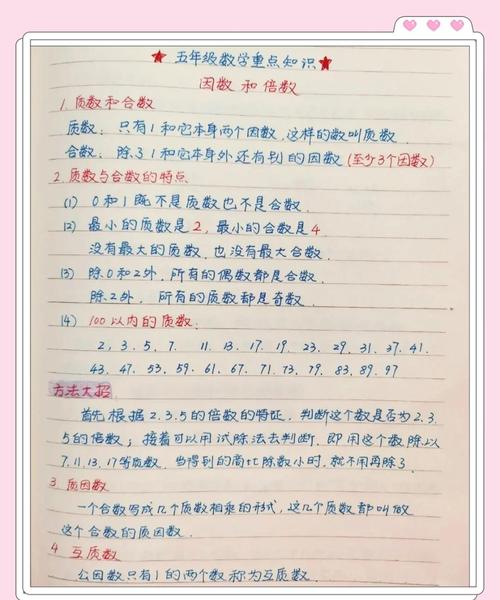 ★五年级数学重点知识★
因数和倍数
1.质数和合数
质数:只有1和它本身两个因数,这样的数叫质数.
合数:除了1和它本身外还有别的因数(至少3个因数)
2.质数与合数的特点
(1) 0和1既不是质数也不是合数.
(2) 最小的质数是2,最小的合数是4
没有最大的质数.也没有最大合数.
(3) 除0和2外,所有的偶数都是合数.
除2外, 所有的质数都是奇数.
(4) 100以内的质数:
2, 3. 5. 7. 11. 13. 17. 19. 23. 29. 31. 37. 41.
43. 47. 53. 59. 61. 67. 71. 73. 79. 83. 89. 97
方法大招
首先根据2.3.5的倍数的特征,判断这个数是否为2.3.
5的倍数;接着可以用试除法去判断.即用这个数除以
7.11.13.17等质数.当得到的商比除数小时,就不用再除了.
3.质因数
一个合数写成几个质数相乘的形式,这几个质数都叫做
这个合数的质因数.
4.互质数
公因数只有1的两个数称为互质数.